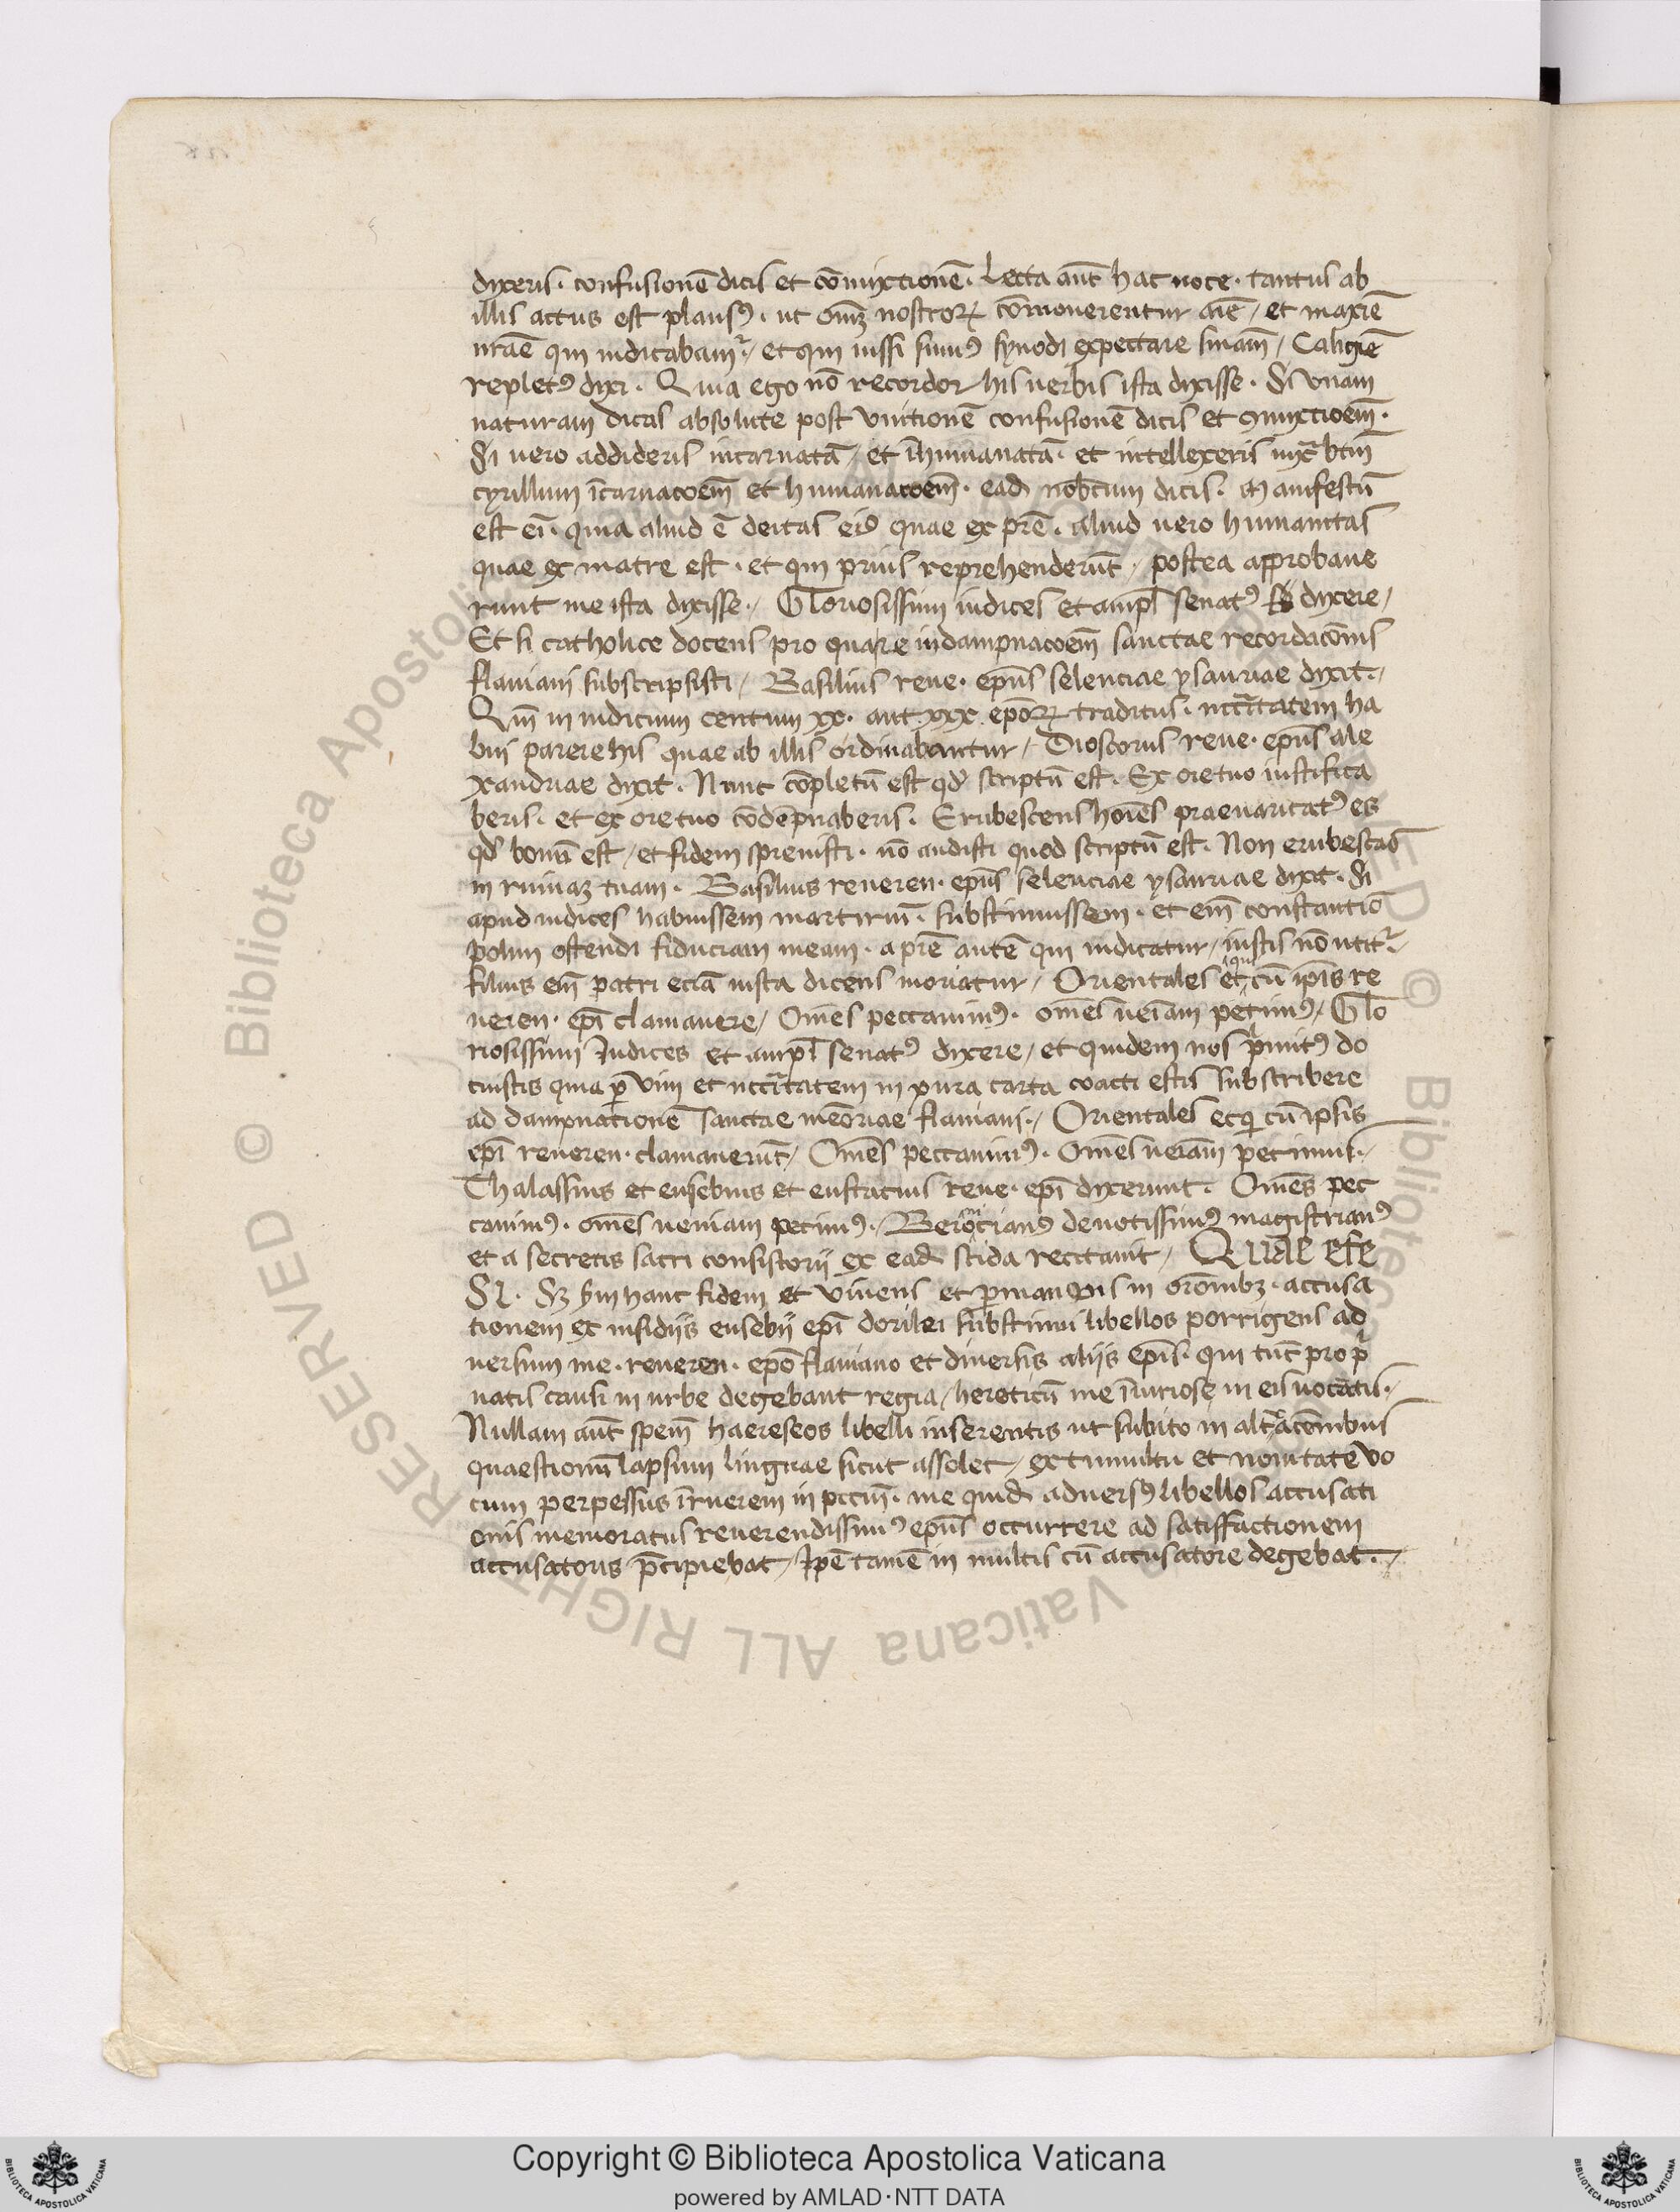 dixeris. confusionē dicis et cōmixtionē. Lecta aut̄ hac uoce. tantus ab
illis actus est plausꝰ. ut om̄ꝫ nostroꝝ cōmouerentur aīe / et maxīe
nr̄ae qui iudicabamur̄ / et qui iussi sumꝰ synodi expectare sniam̄ / Caligīe
repletꝰ dixi. Quia ego nō recordor his uerbis ista dixisse. Si vnam
naturam dicas absolute post vnitionē confusionē dicis et ꝯmixtioem̄.
Si uero addideris incarnatā / et īhumanatā. et intellexeris iuxͣ btm̄
cyrillum īcarnacoem̄ et humanacoem̄. ead nobcum dicis. Manifestū
est eī. quia aliud ē deitas eiꝰ quae ex pr̄e. aliud uero humanitas
quae ex matre est. et qui prius reprehenderūt / postea approbaue
runt me ista dixisse. / Gloriosissimi iudices et ampl̄ senatꝰ dixere /
Et si catholice docens pro quare in dampnacoem̄ sanctae recordacōnis
flauiani subscripsisti / Basilius reue. ep̄us seleuciae ysauriae dixit. /
Qm̄ in iudicium centum xx. aut xxx ep̄oꝝ traditus. necc̄itatem ha
bui parere his quae ab illis ordinabantur / Dioscorus reue. ep̄us ale
xandriae dixit. Nunc cōpletū est qđ scriptū est. Ex ore tuo iustifica
beris. et ex ore tuo cōdēpnaberis. Erubescens hoīes praeuaricatꝰ es
qđ bonū est / et fidem spreuisti. nō audisti quod scriptū est. Non erubescas
in ruinaꝫ tuam. Basilius reueren. ep̄us seleuciae ysauriae dixit. Si
apud iudices habuissem martiriū. substinuissem. et em̄ constantio
polim ostendi fiduciam meam. a pr̄e autē qui iudicatur / iustis nō utitr̄. /
filius em̄ patri eciā iusta dicens moriatur / Orientales et iqui cū ip̄is re
ueren. ep̄i clamauere / Om̄es peccauimꝰ. om̄es ueīam petimꝰ / Glo
riosissimi Iudices et ampl̄ senatꝰ dixere / et quidem nos pͥmitꝰ do
cuistis quia ꝑ vim et necc̄itatem in pura carta coacti estis subscribere
ad dampnationē sanctae meōriae flauiani. / Orientales et q̨ cū ipsis
ep̄i reueren. clamauerūt / Om̄es peccauimꝰ. Om̄es ueīam petimus. /
Thalassius et eusebius et eustatius reue. ep̄i dixerunt. Om̄es pec
cauimꝰ. om̄es ueniam petimꝰ. / Beronicianꝰ deuotissimꝰ magistrianꝰ
et a secretis sacri consistorij ex ead scida recitauit / Quae efe
SI. Sꝫ hanc fidem et viuens et ꝑmanens in orōnibꝫ. accusa
tionem ex insidijs eusebij ep̄i dorilei substinui libellos porrigens ad
uersum me. reueren. ep̄o flauiano et diuersis alijs ep̄is. qui tūc pro pͥ
uatis causis in urbe degebant regia / hereticū me īiuriose in eis uocatis. /
Nullam aūt spem̄ haereseos libelli inserentis ut subito in altͣcōnibus
quaestionū lapsum linguae sicut assolet / ex tumultu et nouitate vo
cum perpessus īruerem in pccm̄. me quid aduersꝰ libellos accusati
onis memoratus reuerendissimꝰ ep̄us occurrere ad satisfactionem
accusatoris p̄cipiebat / Ip̄e tamē in multis cū accusatore degebat. /
Copyright © Biblioteca Apostolica Vaticana
powered by AMLAD·NTT DATA